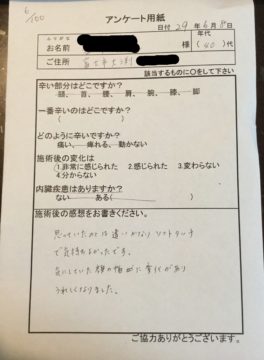 6/100
アンケート用紙
日付 29年 6月 8日
ふりがな
お名前 様
年代
(40)代
ご住所 富士市
該当するものに○をして下さい
辛い部分はどこですか？
頭、首、腰、肩、腕、膝、脚
一番辛いのはどこですか？
( )
どのように辛いですか？
痛い、痺れる、動かない
施術後の変化は
1.非常に感じられた 2.感じられた 3.変わらない
4.分からない
内臓疾患はありますか？
ない ある( )
施術後の感想をお書きください。
思っていたのとは違いかなりソフトタッチ
で気持ちよかったです。
気にしていた顔の 変化があり
うれしくなりました。
ご協力ありがとうございます。